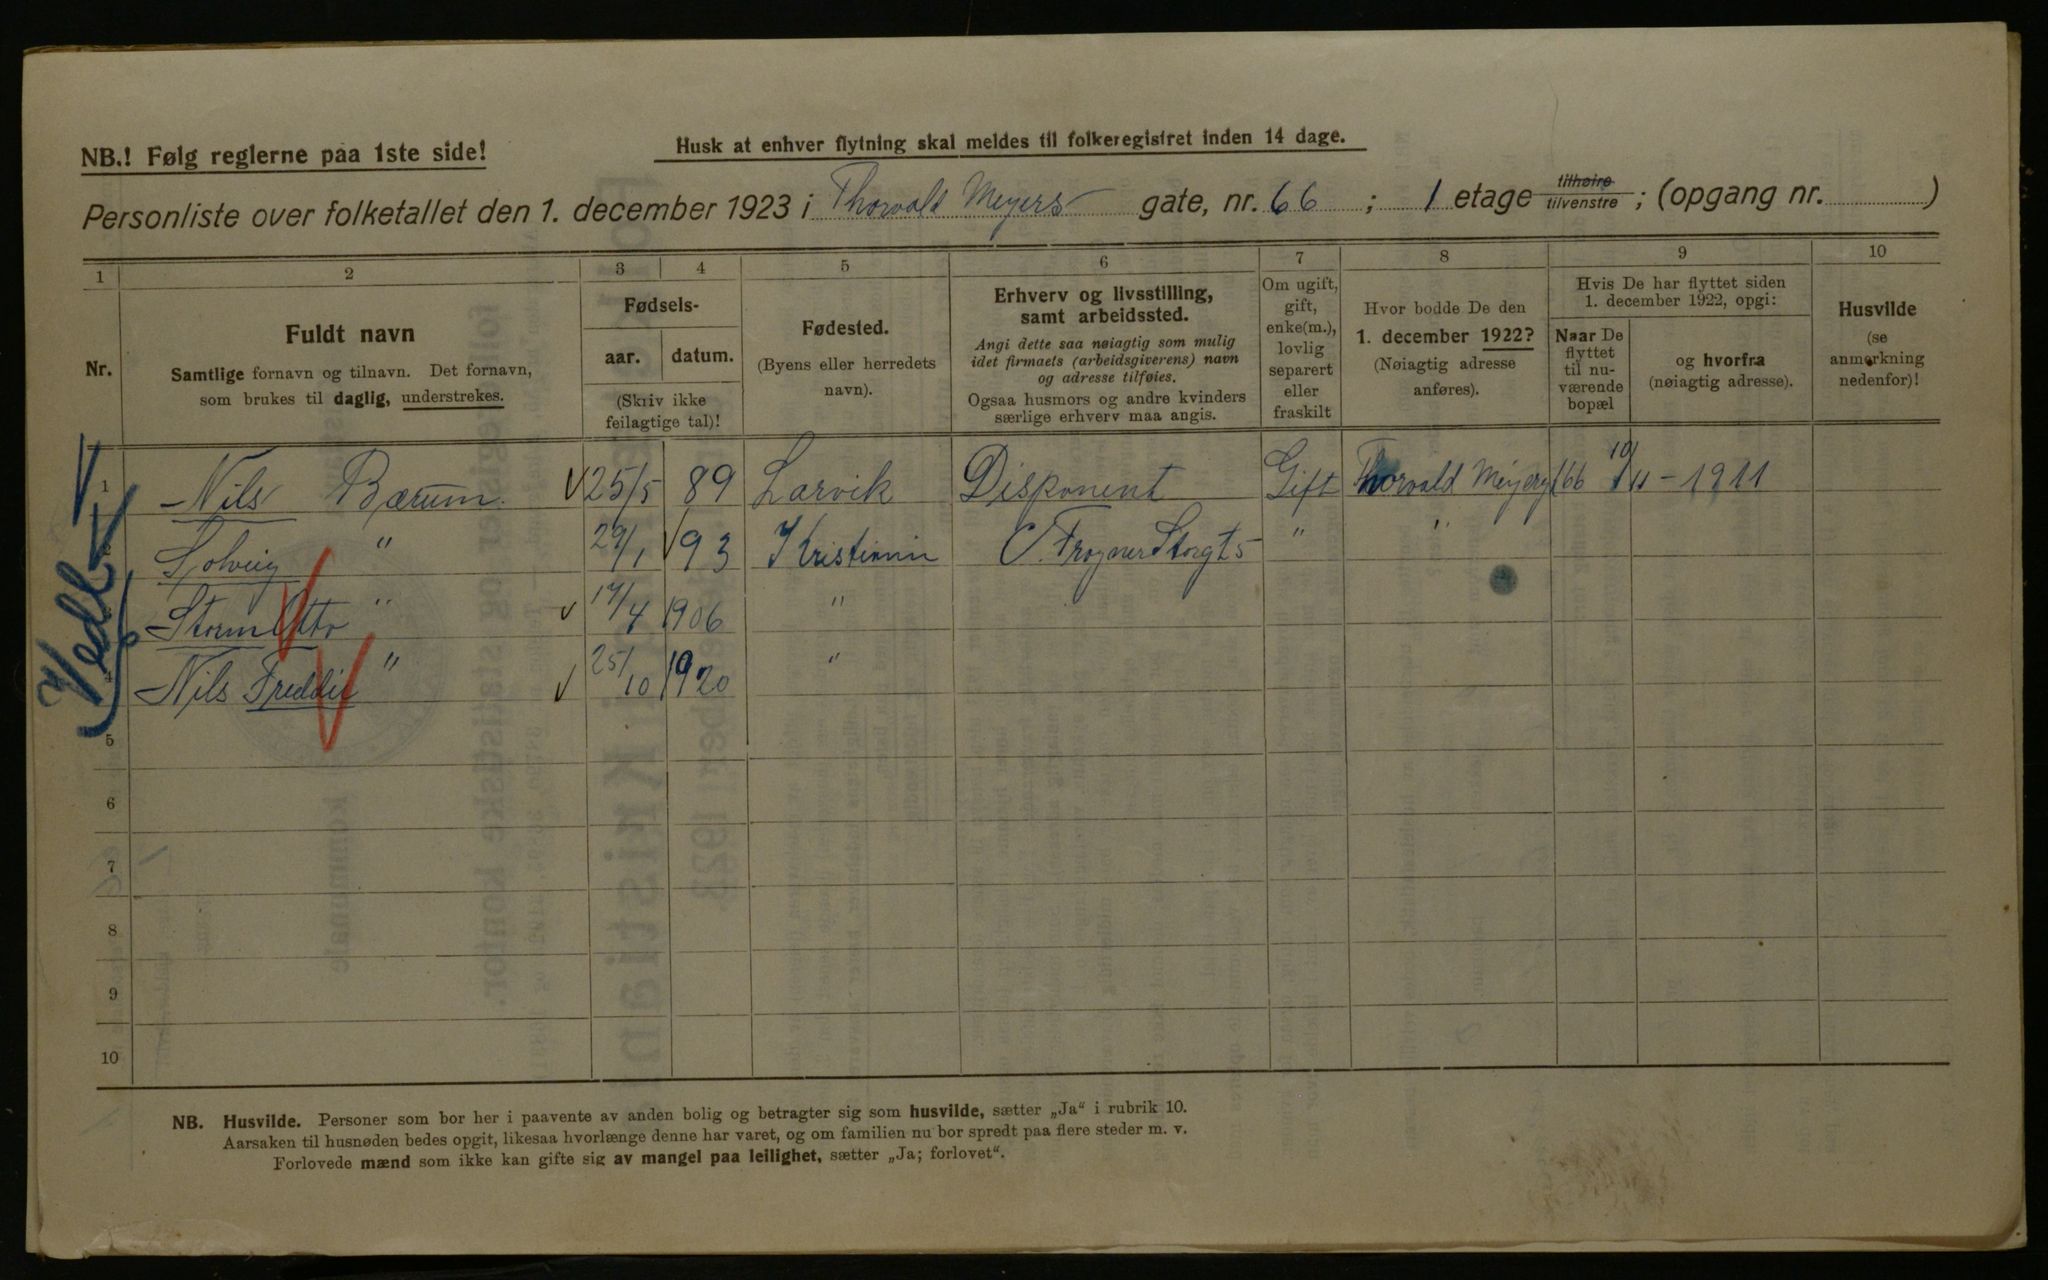 NB.! Følg reglerne paa 1ste side!
Husk at enhver flytning skal meldes til folkeregistret inden 14 dage.
Personliste over folketallet den 1. december 1923 i Thorvald Meyers gate, nr. 66 ; 1 etage tilhøire tilvenstre ; (opgang nr. )
1 2 3 4 5 6 7 8 9 10
Nr.
Fuldt navn
Samtlige fornavn og tilnavn. Det fornavn,
som brukes til daglig, understrekes.
Fødsels-
aar. datum.
(Skriv ikke
feilagtige tal)!
Fødested.
(Byens eller herredets
navn).
Erhverv og livsstilling,
samt arbeidssted.
Angi dette saa nøiagtig som mulig
idet firmaets (arbeidsgiverens) navn
og adresse tilføies.
Ogsaa husmors og andre kvinders
særlige erhverv maa angis.
Om ugift,
gift,
enke(m.),
lovlig
separert
eller
fraskilt
Hvor bodde De den
1. december 1922?
(Nøiagtig adresse
anføres).
Hvis De har flyttet siden
1. december 1922, opgi:
Naar De
flyttet
til nu-
værende
bopæl
og hvorfra
(nøiagtig adresse).
Husvilde
(se
anmerkning
nedenfor)!
1 Nils Bærum 25/5 89 Larvik Disponent Gift Thorvald Meyersgt 66 10/11 - 1911
2 Solveig " 29/1 93 Kristiania C. Frogner Storgt 5 " "
3 Storm Otto " 14/4 1906 "
4 Nils Freddie " 25/10 1920 "
5
6
7
8
9
10
NB. Husvilde. Personer som bor her i paavente av anden bolig og betragter sig som husvilde, sætter „Ja“ i rubrik 10.
Aarsaken til husnøden bedes opgit, likesaa hvorlænge denne har varet, og om familien nu bor spredt paa flere steder m. v.
Forlovede mænd som ikke kan gifte sig av mangel paa leilighet, sætter „Ja; forlovet“.